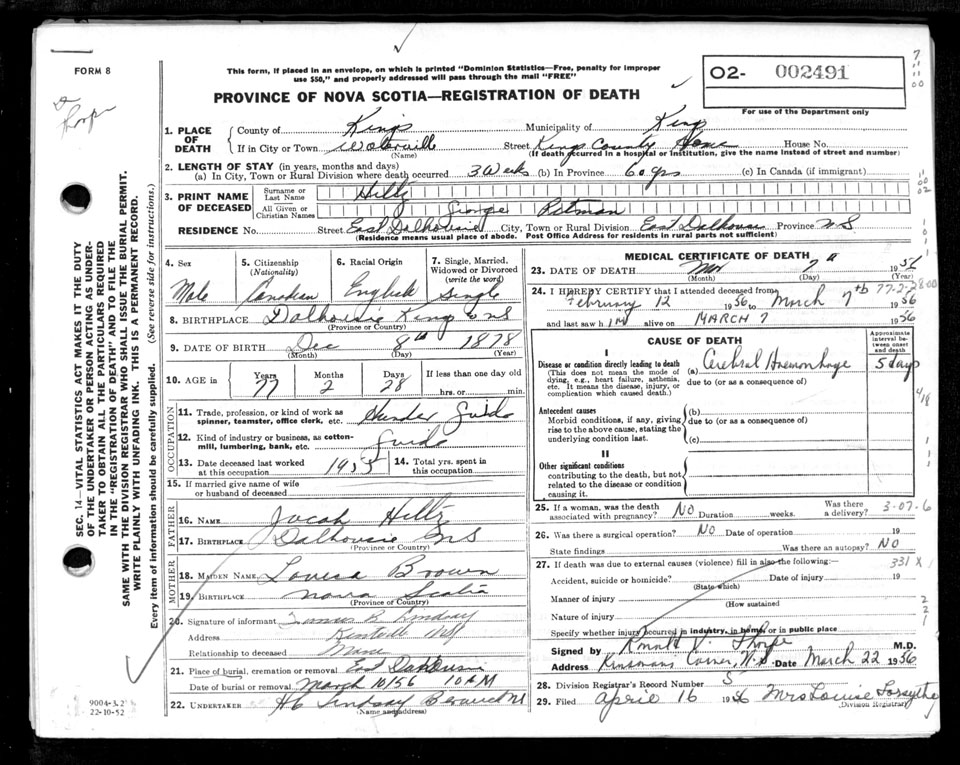 FORM 8
This form, if placed in an envelope, on which is printed "Dominion Statistics—Free, penalty for improper
use $50," and properly addressed will pass through the mail "FREE"
PROVINCE OF NOVA SCOTIA—REGISTRATION OF DEATH
02- 002491
For use of the Department only
Thorpe
SEC. 14—VITAL STATISTICS ACT MAKES IT THE DUTY
OF THE UNDERTAKER OR PERSON ACTING AS UNDER-
TAKER TO OBTAIN ALL THE PARTICULARS REQUIRED
IN THE "REGISTRATION OF DEATH" AND TO FILE THE
SAME WITH THE DIVISION REGISTRAR WHO SHALL ISSUE THE BURIAL PERMIT.
WRITE PLAINLY WITH UNFADING INK. THIS IS A PERMANENT RECORD.
Every item of information should be carefully supplied. (See reverse side for instructions.)
1. PLACE OF DEATH County of Kings Municipality of King
If in City or Town Waterville Street Kings County Home House No.
(Name) (If death occurred in a hospital or institution, give the name instead of street and number)
2. LENGTH OF STAY (in years, months and days)
(a) In City, Town or Rural Division where death occurred 3 Weeks (b) In Province 60 yrs (c) In Canada (if immigrant)
3. PRINT NAME OF DECEASED Surname or Last Name Hiltz
All Given or Christian Names George Pitman
RESIDENCE No. Street East Dalhousie City, Town or Rural Division East Dalhousie Province NS
(Residence means usual place of abode. Post Office Address for residents in rural parts not sufficient)
4. Sex Male
5. Citizenship (Nationality) Canadian
6. Racial Origin English
7. Single, Married, Widowed or Divorced (write the word) Single
8. BIRTHPLACE Dalhousie Kings Co NS
(Province or Country)
9. DATE OF BIRTH Dec 8th 1878
(Month) (Day) (Year)
10. AGE in Years 77 Months 2 Days 28 If less than one day hrs. or min.
OCCUPATION
11. Trade, profession, or kind of work as spinner, teamster, office clerk, etc. Hunter Guide
12. Kind of industry or business, as cotton-mill, lumbering, bank, etc. Guide
13. Date deceased last worked at this occupation 1955 14. Total yrs. spent in this occupation
15. If married give name of wife or husband of deceased
FATHER
16. NAME Jacob Hiltz
17. BIRTHPLACE Dalhousie NS
(Province or Country)
MOTHER
18. MAIDEN NAME Louisa Brown
19. BIRTHPLACE Nova Scotia
(Province of Country)
20. Signature of informant Lindsay
Address Kentville NS
Relationship to deceased None
21. Place of burial, cremation or removal East Dalhousie
Date of burial or removal March 10/56 10 AM
22. UNDERTAKER HC Lindsay Berwick NS
(Name and address)
9004-3.2
22-10-52
MEDICAL CERTIFICATE OF DEATH
23. DATE OF DEATH Mar 7th 1956
(Month) (Day) (Year)
24. I HEREBY CERTIFY that I attended deceased from 77-2-28 00
February 12 1956 to March 7th 1956
and last saw him alive on MARCH 7 1956
CAUSE OF DEATH
Approximate interval between onset and death
I
Disease or condition directly leading to death (a) Cerebral Haemorrhage 5 days
(This does not mean the mode of dying, e.g., heart failure, asthenia, etc. It means the disease, injury, or complication which caused death.)
due to (or as a consequence of)
Antecedent causes (b)
Morbid conditions, if any, giving rise to the above cause, stating the underlying condition last.
due to (or as a consequence of)
(c)
II
Other significant conditions
contributing to the death, but not related to the disease or condition causing it.
25. If a woman, was the death associated with pregnancy? No Duration weeks. Was there a delivery? 3-07-6
26. Was there a surgical operation? No Date of operation 19
State findings Was there an autopsy? No
27. If death was due to external causes (violence) fill in also the following: 331 X
Accident, suicide or homicide? Date of injury 19
(State which)
Manner of injury
(How sustained)
Nature of injury
Specify whether injury occurred in industry, in home or in public place
Signed by Ronald V. Thorpe M.D.
Address Kinsmans Corner, N.S. Date March 22 1956
28. Division Registrar's Record Number 5
29. Filed April 16 1956 Mrs Louise Forsythe
(Division Registrar)